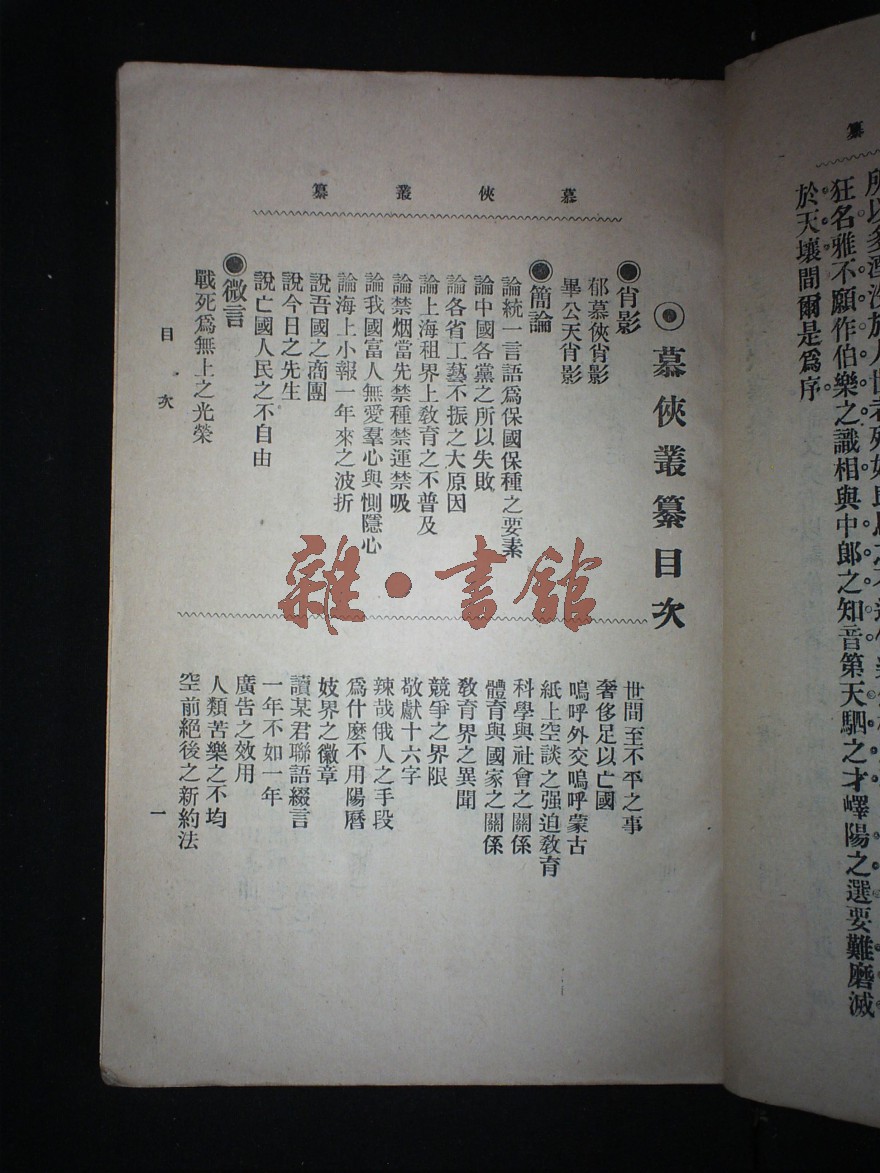 纂
狂名雅不願作伯樂之識相與中郎之知音第天駟之才嶧陽之選要難磨滅
於天壤間爾是爲序
慕俠叢纂
慕俠叢纂目次
肖影
郁慕俠肖影
畢公天肖影
簡論
論統一言語爲保國保種之要素
論中國各黨之所以失敗
論各省工藝不振之大原因
論上海租界上敎育之不普及
論禁烟當先禁種禁運禁吸
論我國富人無愛羣心與惻隱心
論海上小報一年來之波折
說吾國之商團
說今日之先生
說亡國人民之不自由
微言
戰死爲無上之光榮
世間至不平之事
奢侈足以亡國
嗚呼外交嗚呼蒙古
紙上空談之强迫敎育
科學與社會之關係
體育與國家之關係
敎育界之異聞
競爭之界限
敬獻十六字
辣哉俄人之手段
爲什麼不用陽曆
妓界之徽章
讀某君聯語綴言
一年不如一年
廣告之效用
人類苦樂之不均
空前絕後之新約法
目次
一
雜·書館